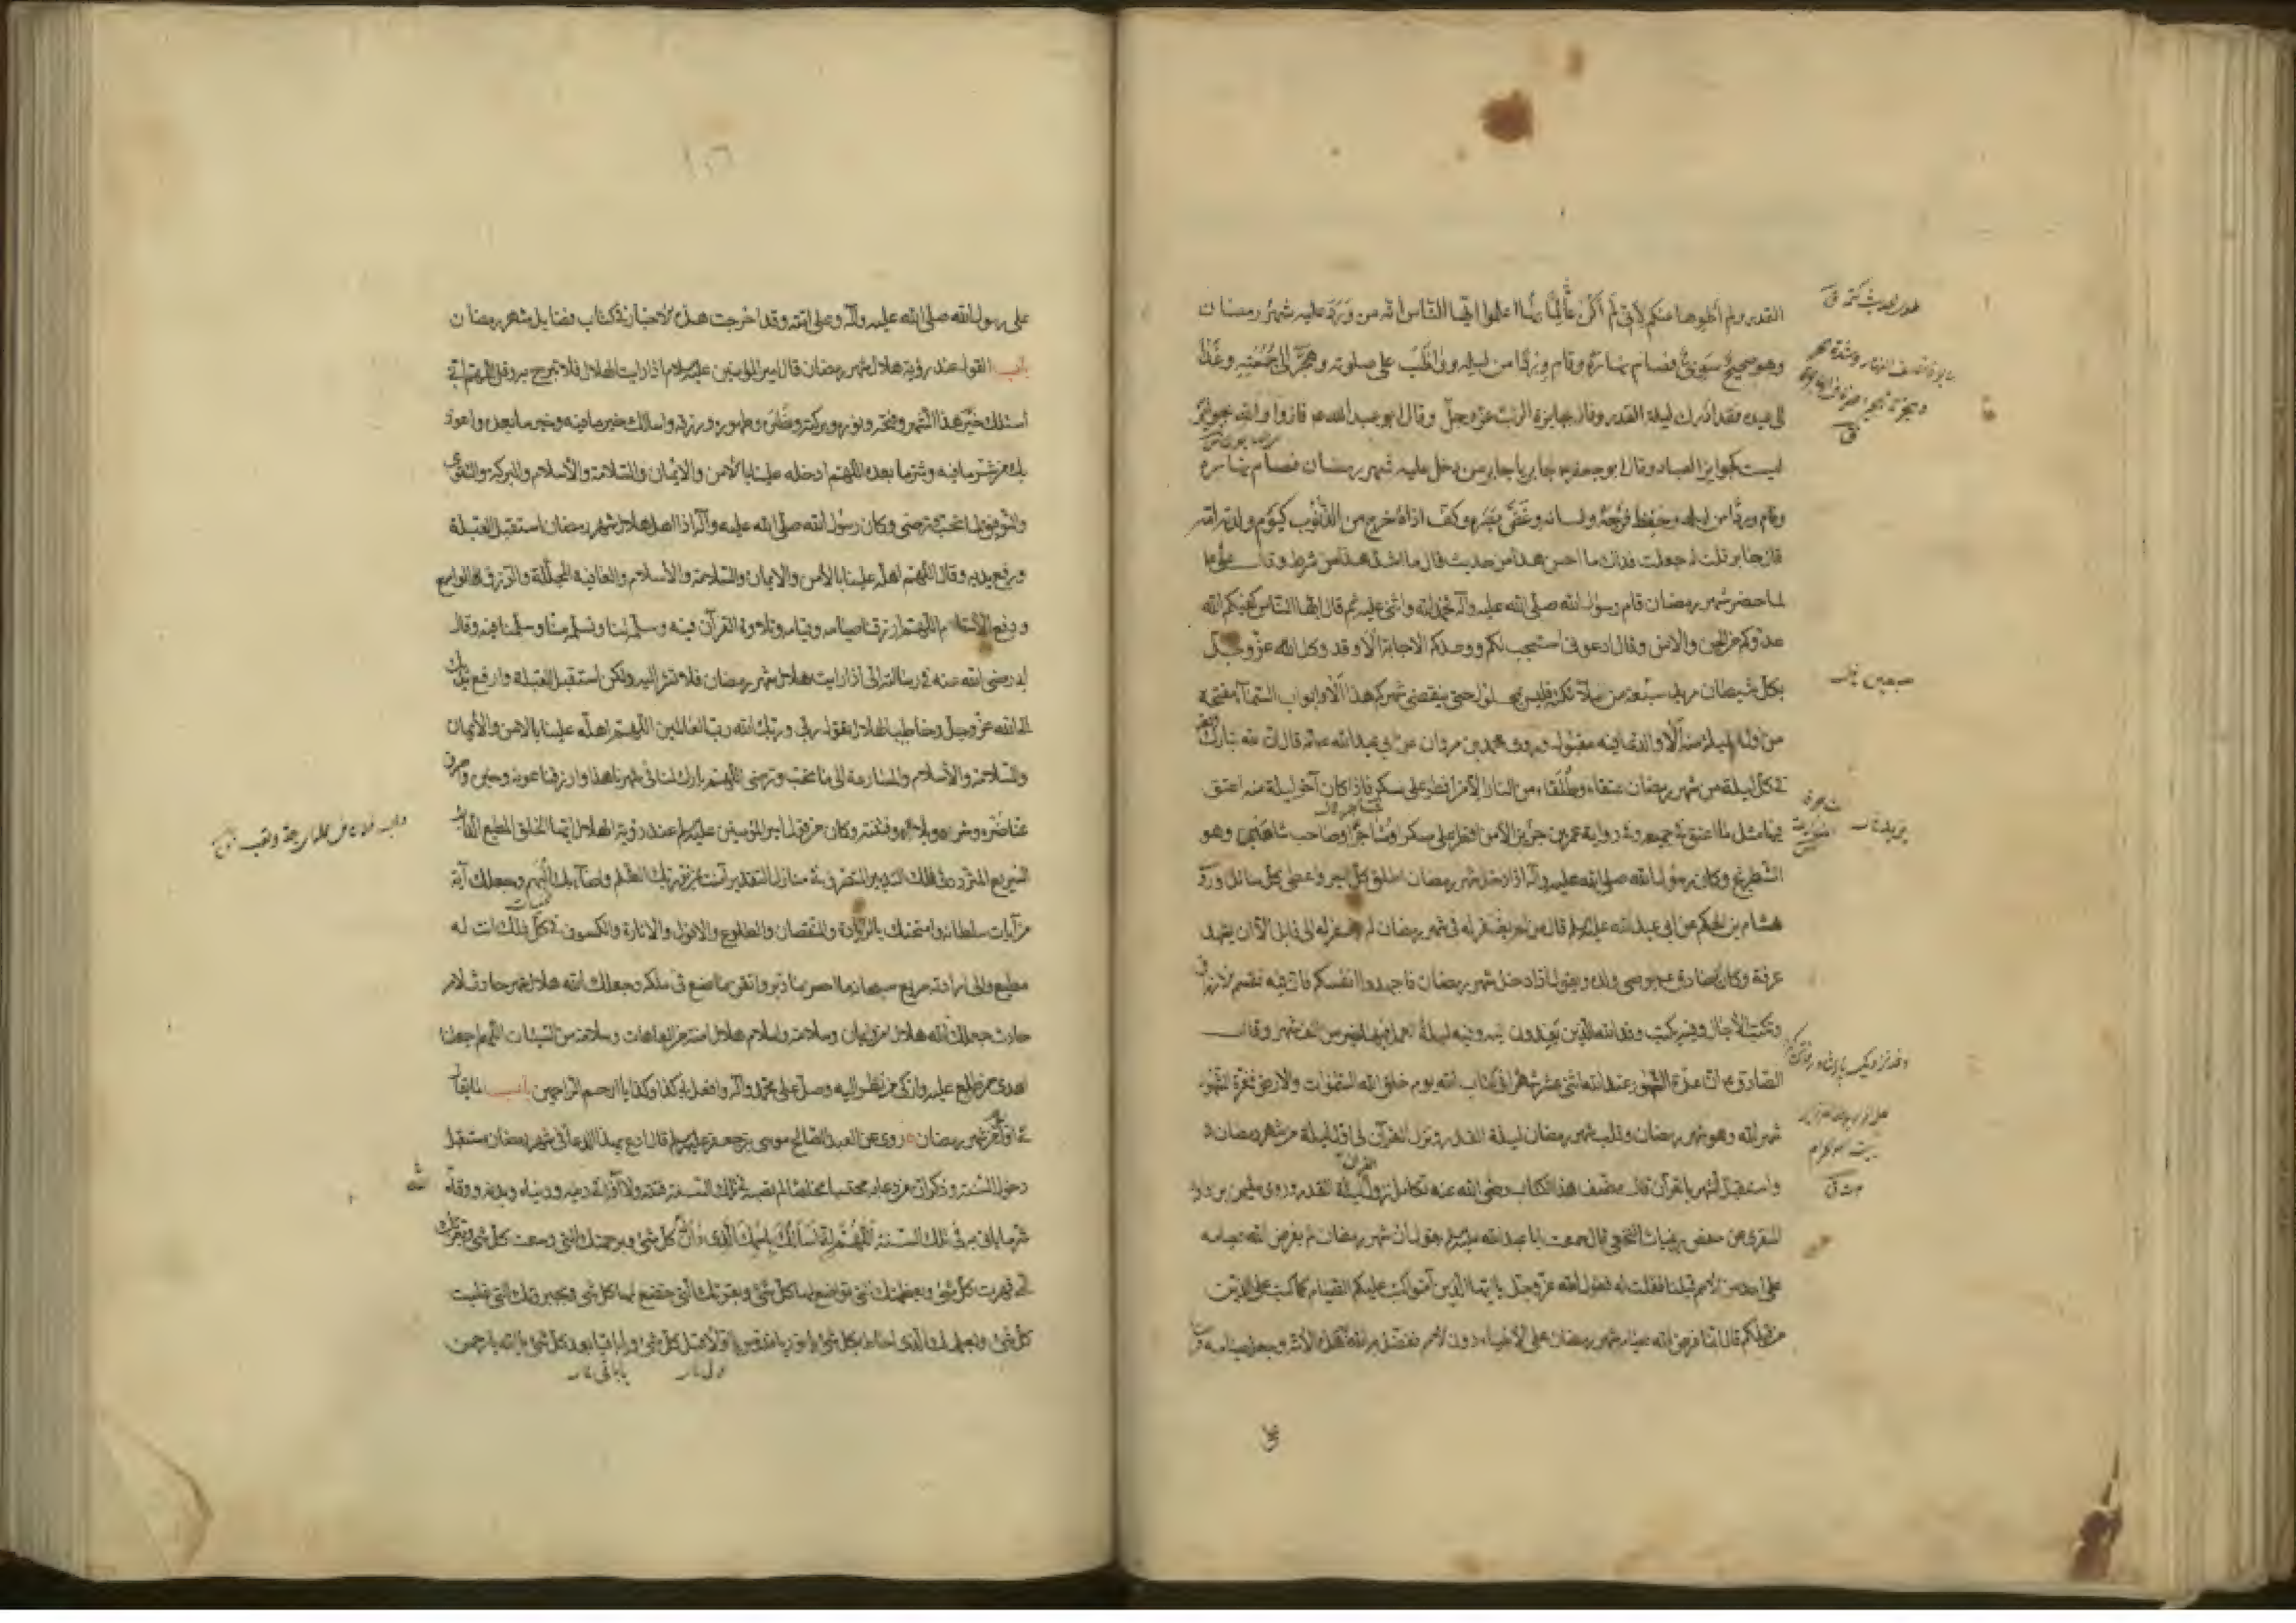 القدر ولم أطوها عنكم لأني لم أكن عالما بها اعلموا ايها الناس انه من ورد عليه شهر رمضان
وهو صحيح سوي فصام نهاره وقام وردا من ليله وواظب على صلوته وهجر الى جمعته وغدا
الى عيده فقد ادرك ليلة القدر وفاز بجايزة الرب عز وجل وقال ابو عبد الله ع فازوا والله بجوايز
ليست كجوايز العباد وقال ابو جعفر ع لجابر يا جابر من دخل عليه شهر رمضان فصام نهاره
وقام وردا من ليله وحفظ فرجه ولسانه وغض بصره وكف اذاه خرج من الذنوب كيوم ولدته امه
قال جابر قلت له جعلت فداك ما احسن هذا من حديث قال ما اشد هذا من شرط وقال علي ع
لما حضر شهر رمضان قام رسول الله صلى الله عليه وآله فحمد الله واثنى عليه ثم قال ايها الناس كفيكم الله
عدوكم من الجن والانس وقال ادعوني استجب لكم ووعدكم الاجابة ألا وقد وكل الله عز وجل
بكل شيطان مريد سبعة من ملائكته فليس بمحلول حتى ينقضي شهركم هذا ألا وابواب السماء مفتحة
من اول ليلة منه ألا والدعاء فيه مقبول وروى محمد بن مروان عن ابي عبد الله ع انه قال ان لله تبارك وتعالى
في كل ليلة من شهر رمضان عتقاء وطلقاء من النار الا من افطر على مسكر فاذا كان آخر ليلة منه اعتق
فيها مثل ما اعتق في جميعه وفي رواية عمر بن يزيد الا من افطر على مسكر او مشاحنا او صاحب شاهين وهو
الشطرنج وكان رسول الله صلى الله عليه وآله اذا دخل شهر رمضان اطلق كل اسير واعطى كل سائل وروى
هشام بن الحكم عن ابي عبد الله عليه السلم قال من لم يغفر له في شهر رمضان لم يغفر له الى قابل الا ان يشهد
عرفة وكان الصادق ع يوصي ولده ويقول اذا دخل شهر رمضان فاجهدوا انفسكم فان فيه تقسم الارزاق
وتكتب الآجال وفيه يكتب وفد الله الذين يفدون اليه وفيه ليلة العمل فيها خير من الف شهر وقال
الصادق ع ان عدة الشهور عند الله اثنى عشر شهرا في كتاب الله يوم خلق الله السموات والارض فغرة الشهور
شهر الله وهو شهر رمضان وقلب شهر رمضان ليلة القدر ونزل القرآن في اول ليلة من شهر رمضان
واستقبل الشهر بالقرآن قال مصنف هذا الكتاب رضي الله عنه تكامل نزول القرآن ليلة القدر وروى سليمن بن داود
المنقري عن حفص بن غياث النخعي قال سمعت ابا عبد الله عليه السلم يقول ان شهر رمضان لم يفرض الله صيامه
على احد من الامم قبلنا فقلت له فقول الله عز وجل يا ايها الذين آمنوا كتب عليكم الصيام كما كتب على الذين
من قبلكم قال انما فرض الله صيام شهر رمضان على الانبياء دون الامم ففضل به الله هذه الامة وجعل صيامه
على رسول الله صلى الله عليه وآله وعلى امته وقد اخرجت هذه الاخبار في كتاب فضايل شهر رمضان
باب القول عند رؤية هلال شهر رمضان قال امير المؤمنين عليه السلام اذا رايت الهلال فلا تبرح وقل اللهم اني
اسئلك خير هذا الشهر وفتحه ونوره وبركته وطهوره ورزقه واسالك خير ما فيه وخير ما بعده واعوذ
بك من شر ما فيه وشر ما بعده اللهم ادخله علينا بالامن والايمان والسلامة والاسلام والبركة والتقوى
والتوفيق لما تحب وترضى وكان رسول الله صلى الله عليه وآله اذا اهل هلال شهر رمضان استقبل القبلة
ورفع يديه وقال اللهم اهله علينا بالامن والايمان والسلامة والاسلام والعافية المجللة والرزق الواسع
ودفع الاسقام اللهم ارزقنا صيامه وقيامه وتلاوة القرآن فيه وسلمه لنا وتسلمه منا وسلمنا فيه وقال
ابي رضي الله عنه في رسالته الي اذا رايت هلال شهر رمضان فلا تشر اليه ولكن استقبل القبلة وارفع يديك
الى الله عز وجل وخاطب الهلال تقول ربي وربك الله رب العالمين اللهم اهله علينا بالامن والايمان
والسلامة والاسلام والمسارعة الى ما تحب وترضى اللهم بارك لنا في شهرنا هذا وارزقنا عونه وخيره واصرف
عنا ضره وشره وبلاءه وفتنته وكان من قول امير المؤمنين عليه السلم عند رؤية الهلال ايها الخلق المطيع الدائب
السريع المتردد في فلك التدبير المتصرف في منازل التقدير آمنت بمن نور بك الظلم واضاء بك البهم وجعلك آية
من آيات سلطانه وامتحنك بالزيادة والنقصان والطلوع والافول والانارة والكسوف في كل ذلك انت له
مطيع والى ارادته سريع سبحانه ما احسن ما دبر واتقن ما صنع في ملكه وجعلك الله هلال شهر حادث لامر
حادث جعلك الله هلال امن وايمان وسلامة واسلام هلال امنة من العاهات وسلامة من السيئات اللهم اجعلنا
اهدى من طلع عليه وازكى من نظر اليه وصل على محمد وآله وافعل بي كذا وكذا يا ارحم الراحمين باب ما يقال
في اول شهر رمضان روي عن العبد الصالح موسى بن جعفر عليه السلم قال ادع بهذا الدعاء في شهر رمضان مستقبل
دخول السنة وذكر ان من دعا به محتسبا مخلصا لم تصبه في تلك السنة فتنة ولا آفة في دينه ودنياه وبدنه ووقاه
شر ما ياتي به في تلك السنة اللهم اني اسألك باسمك الذي دان له كل شئ وبرحمتك التي وسعت كل شئ وبعزتك
التي قهرت كل شئ وبعظمتك التي تواضع لها كل شئ وبقوتك التي خضع لها كل شئ وبجبروتك التي غلبت
كل شئ وبعلمك الذي احاط بكل شئ يا نور يا قدوس يا اول قبل كل شئ ويا باقيا بعد كل شئ يا الله يا رحمن